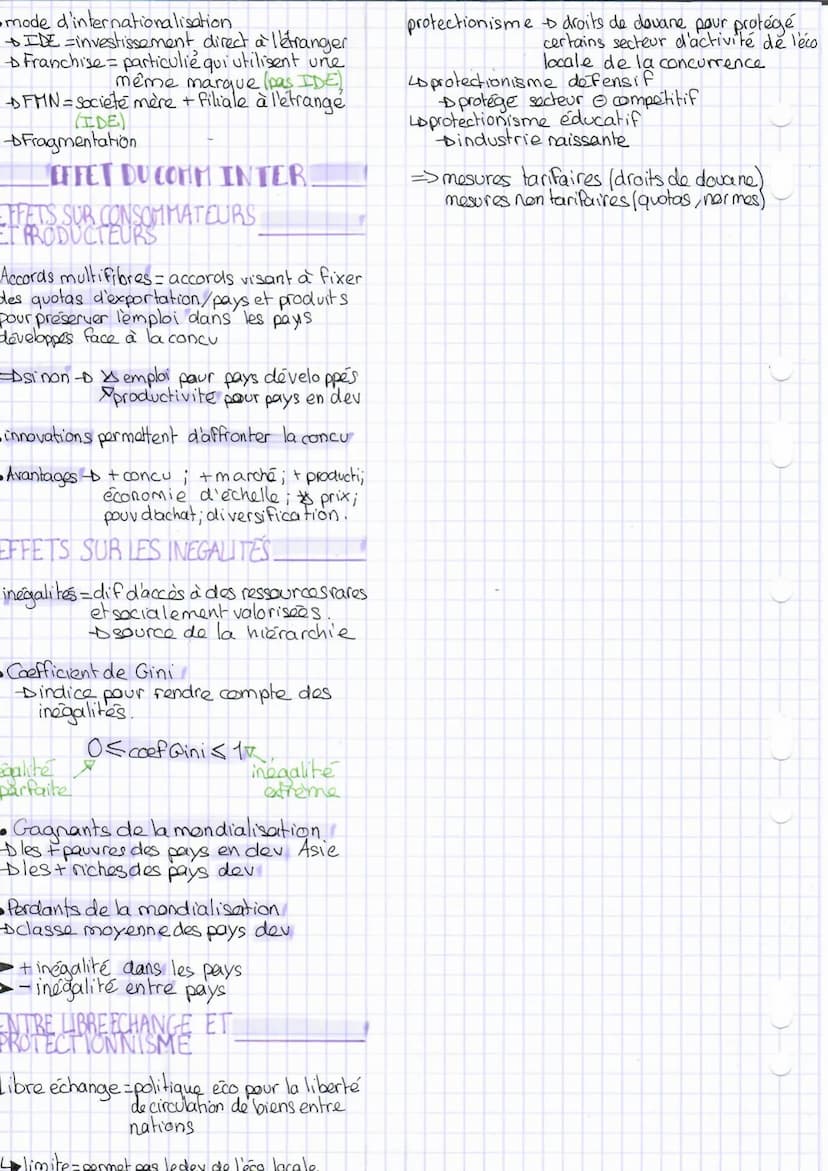 •mode d'internationalisation
→ IDE = investissement direct à l'étranger
→ Franchise = particulié qui utilisent une
même marque (pas IDE)
→ FMN = société mère + filiale à l'étrangé
(IDE)
→ Fragmentation
EFFET DU COMM INTER
EFFETS SUR CONSOMMATEURS
ET PRODUCTEURS
Accords multifibres = accords visant à fixer
des quotas d'exportation/pays et produits
pour préserver l'emploi dans les pays
développés face à la concu
=> sinon → ↘ emploi pour pays développés
productivité pour pays en dev
•innovations permettent d'affronter la concu
•Avantages → + concu ; + marché ; + producti;
économie d'échelle ; ↘ prix ;
pouv d'achat ; diversification.
EFFETS SUR LES INEGALITÉS
inégalités = dif d'accès à des ressources rares
et socialement valorisées.
→ source de la hiérarchie
•Coefficient de Gini
→ indice pour rendre compte des
inégalités.
0 ≤ coef Gini ≤ 1
égalité parfaite
inégalité extrême
• Gagnants de la mondialisation
→ les + pauvres des pays en dev Asie
→ les + riches des pays dev
•Perdants de la mondialisation
→ classe moyenne des pays dev
➤ + inégalité dans les pays
➤ - inégalité entre pays
ENTRE LIBRE ECHANGE ET
PROTECTIONNISME
Libre échange = politique éco pour la liberté
de circulation de biens entre
nations
↳ limite = permet pas le dev de l'éco locale
protectionisme → droits de douane pour protégé
certains secteur d'activité de l'éco
locale de la concurrence
↳ protectionisme défensif
→ protége secteur ⊖ compétitif
↳ protectionisme éducatif
→ industrie naissante
=> mesures tarifaires (droits de douane)
mesures non tarifaires (quotas, normes)